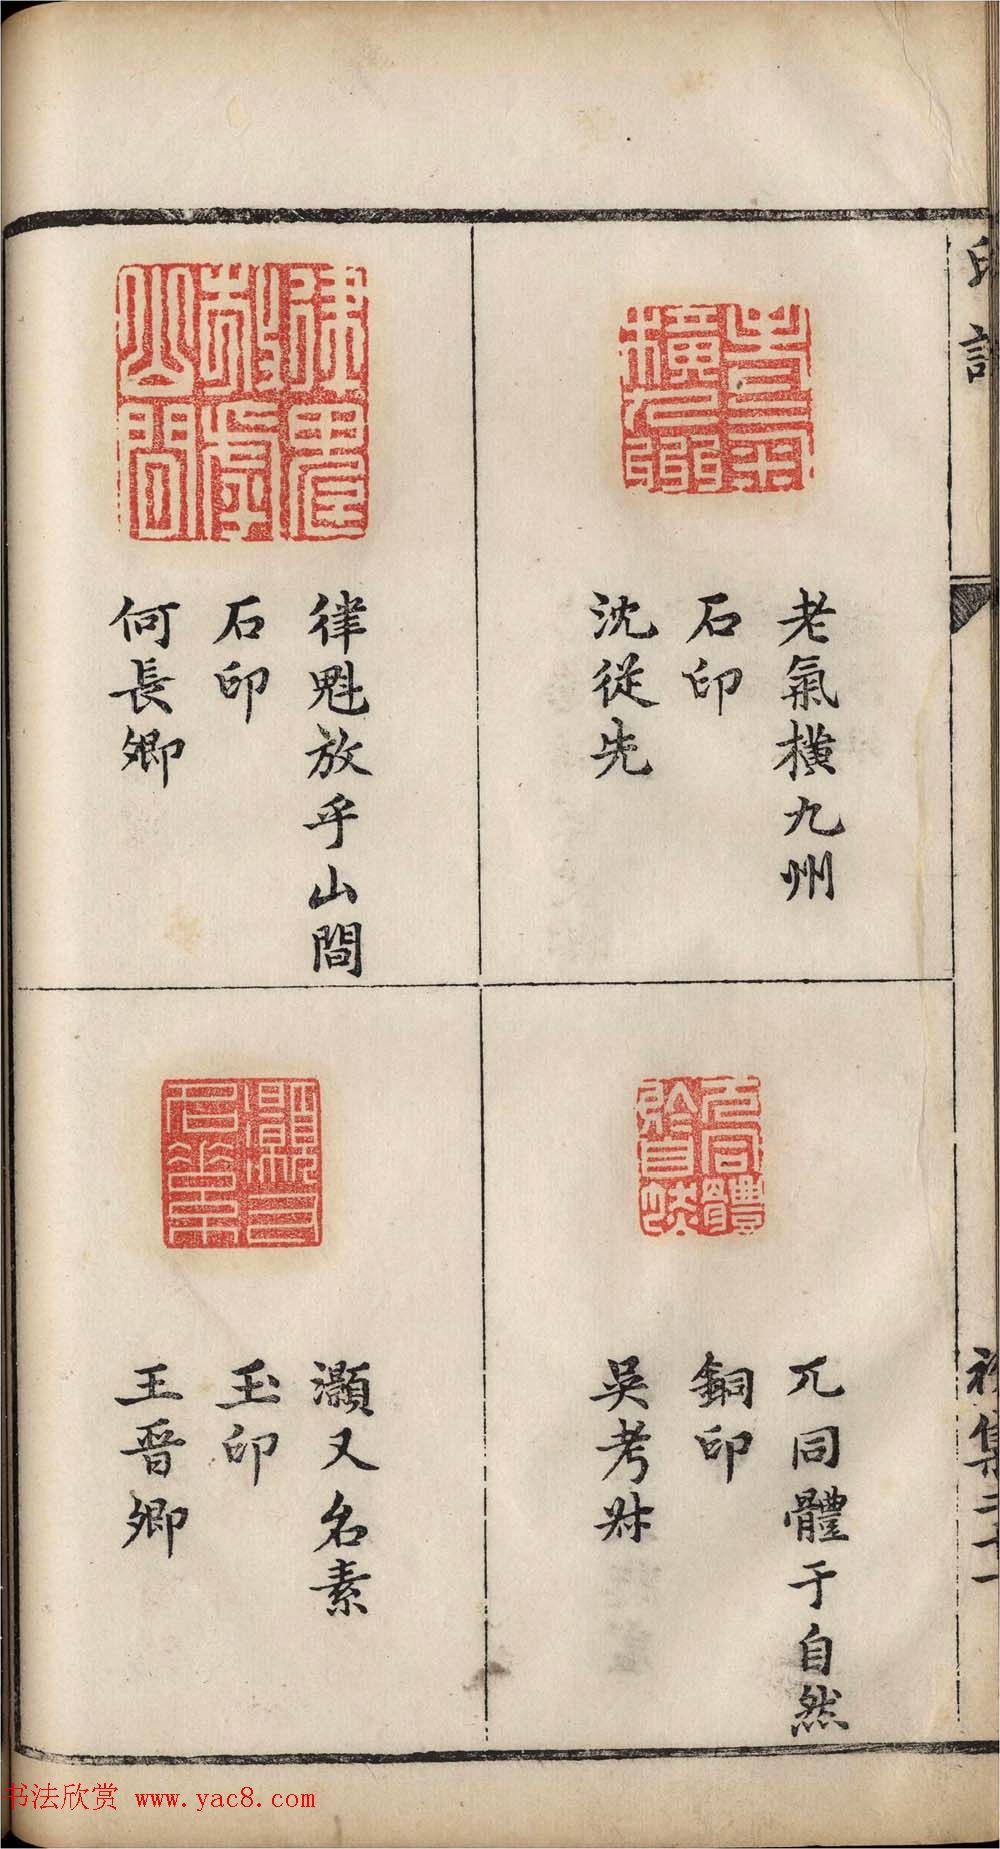 印譜
初集二十一
老氣橫九州
石印
沈從先
律魁放乎山間
石印
何長卿
兀同體于自然
銅印
吳考叔
灝又名素
玉印
王晉卿
书法欣赏 www.yac8.com